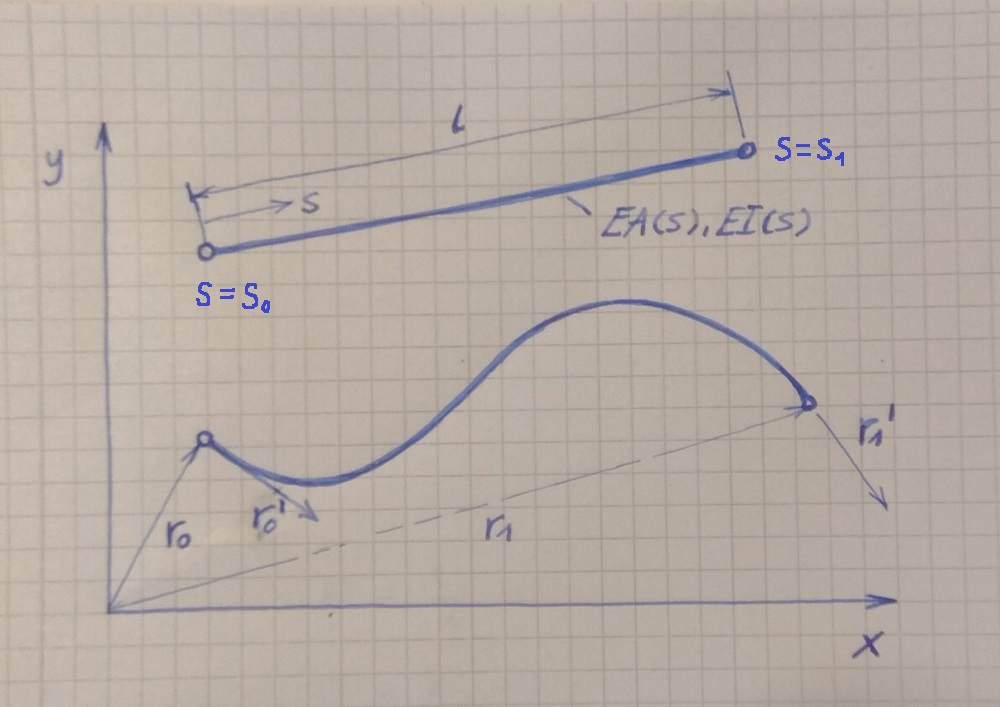 y
l
s
S=S₁
EA(s), EI(s)
S=S₀
r₀
r₀'
r₁
r₁'
x